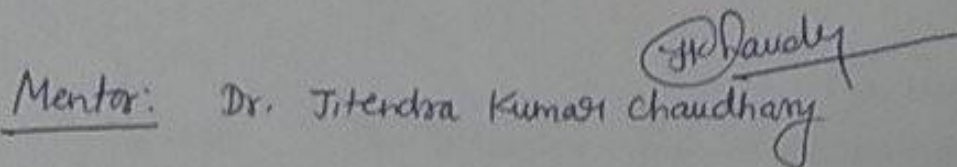 Mentor: Dr. Jitendra Kumar Chaudhary